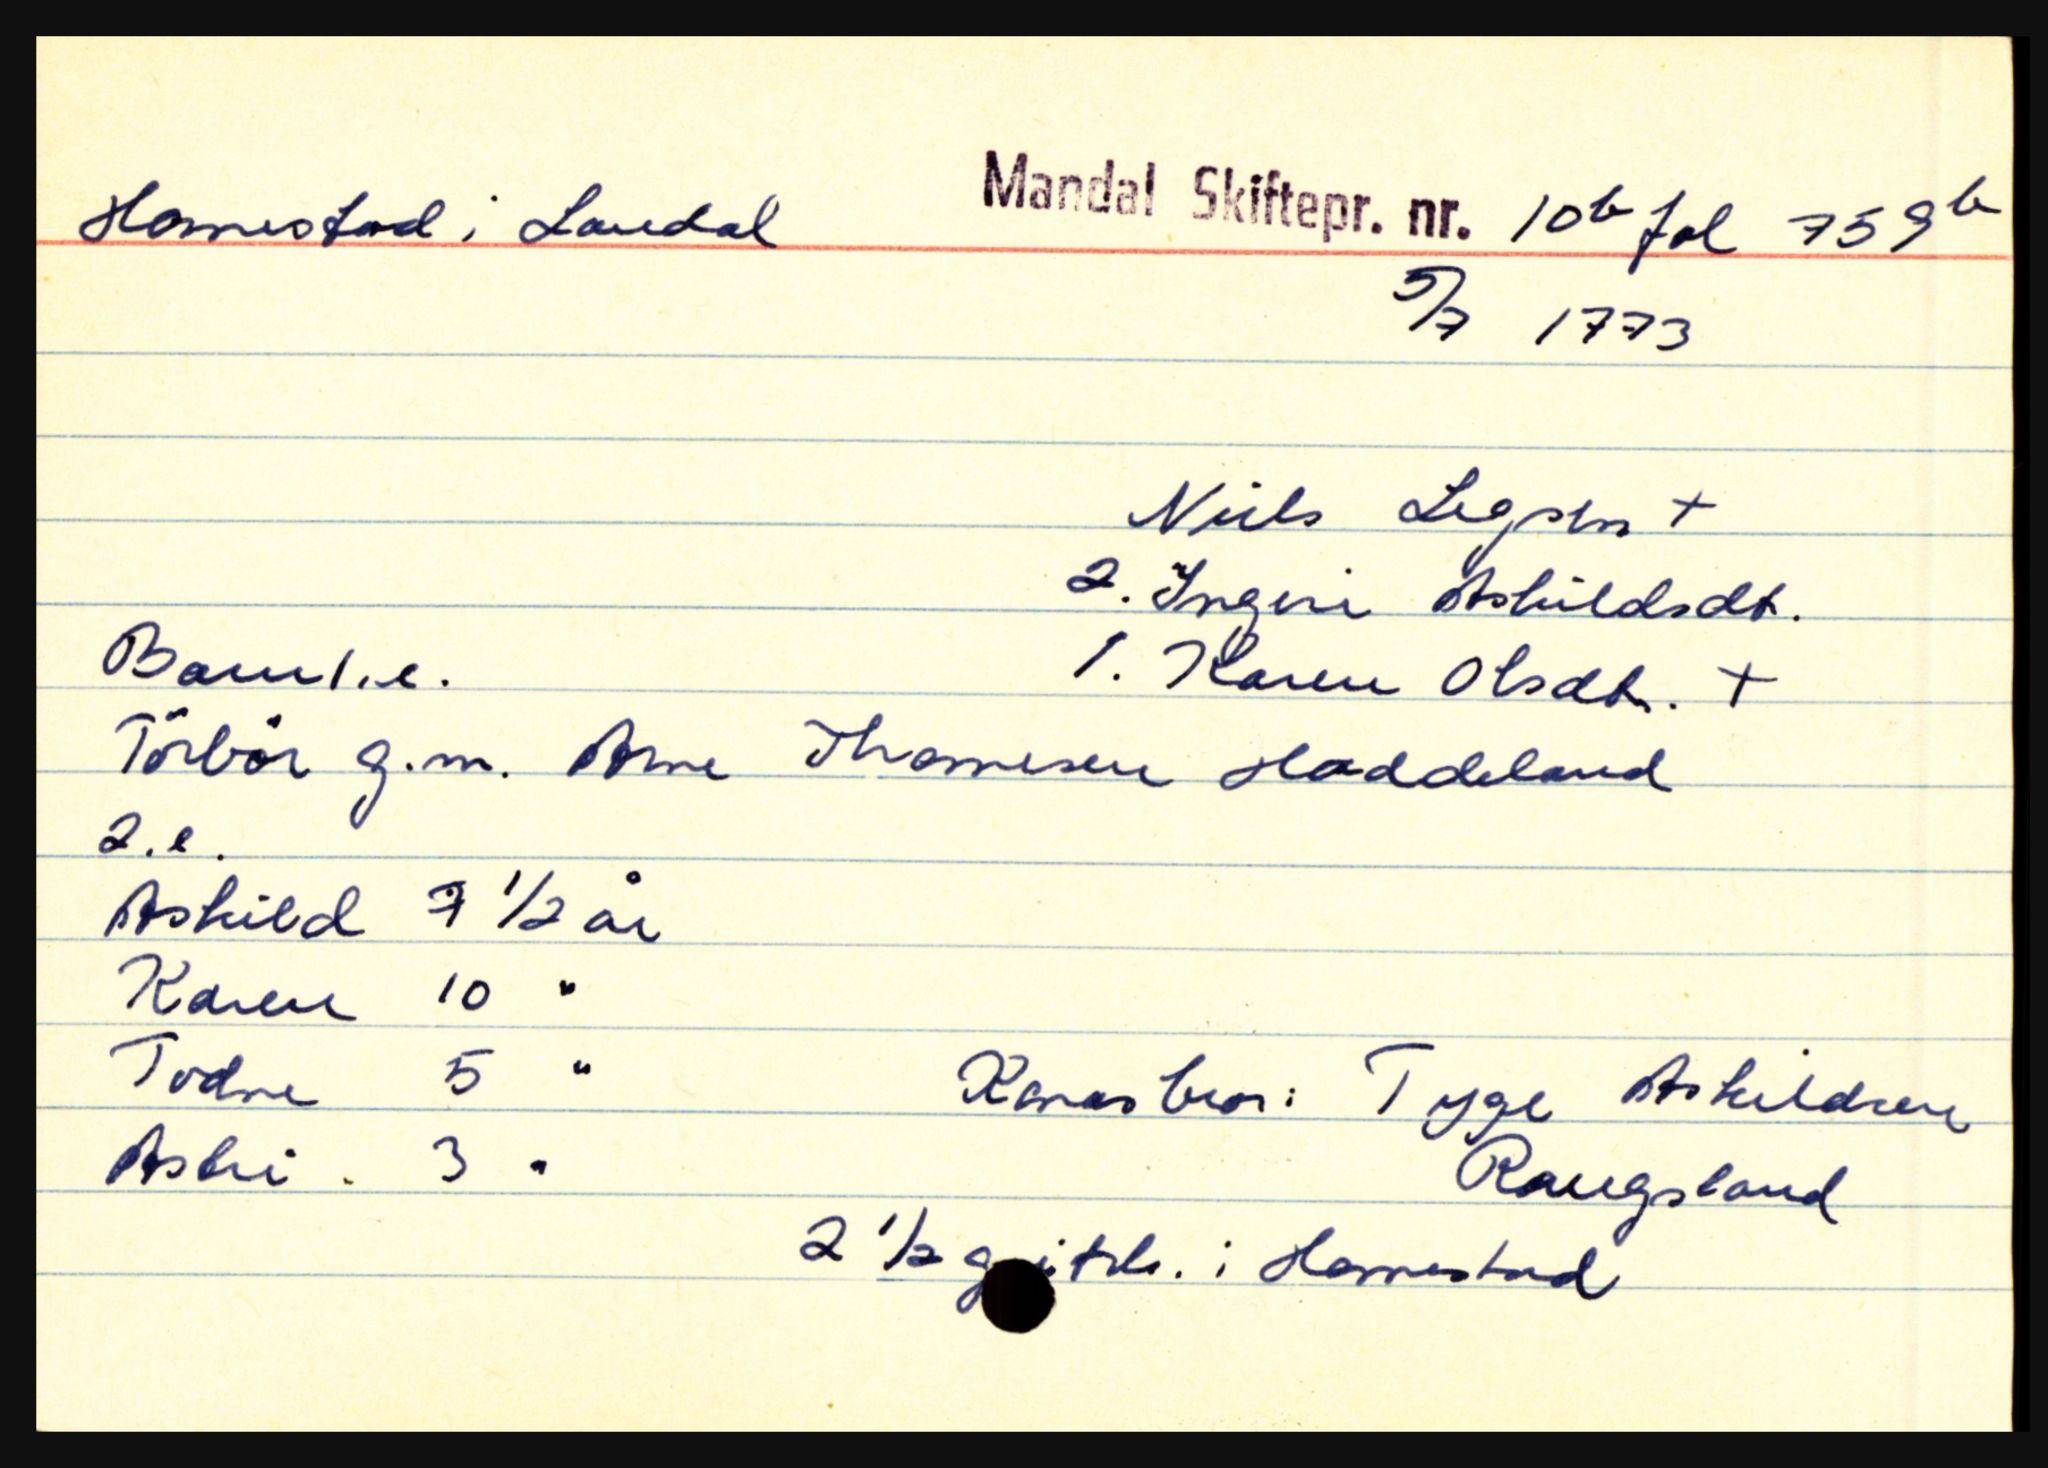 Homestad i Laudal Mandal Skiftepr. nr. 10b fol 759b
5/7 1773
Niels Legsen +
2. Ingeri Askildsdt.
1. Karen Olsdt. +
Barn 1.e.
Törbör g.m. Arne Thomesen Haddeland
2.e.
Askild 7 1/2 år
Karen 10 "
Todne 5 "
Konas bror: Tyge Askildsen
Astri . 3 "
Raugsland
2 1/2 g itsl. i Homestad